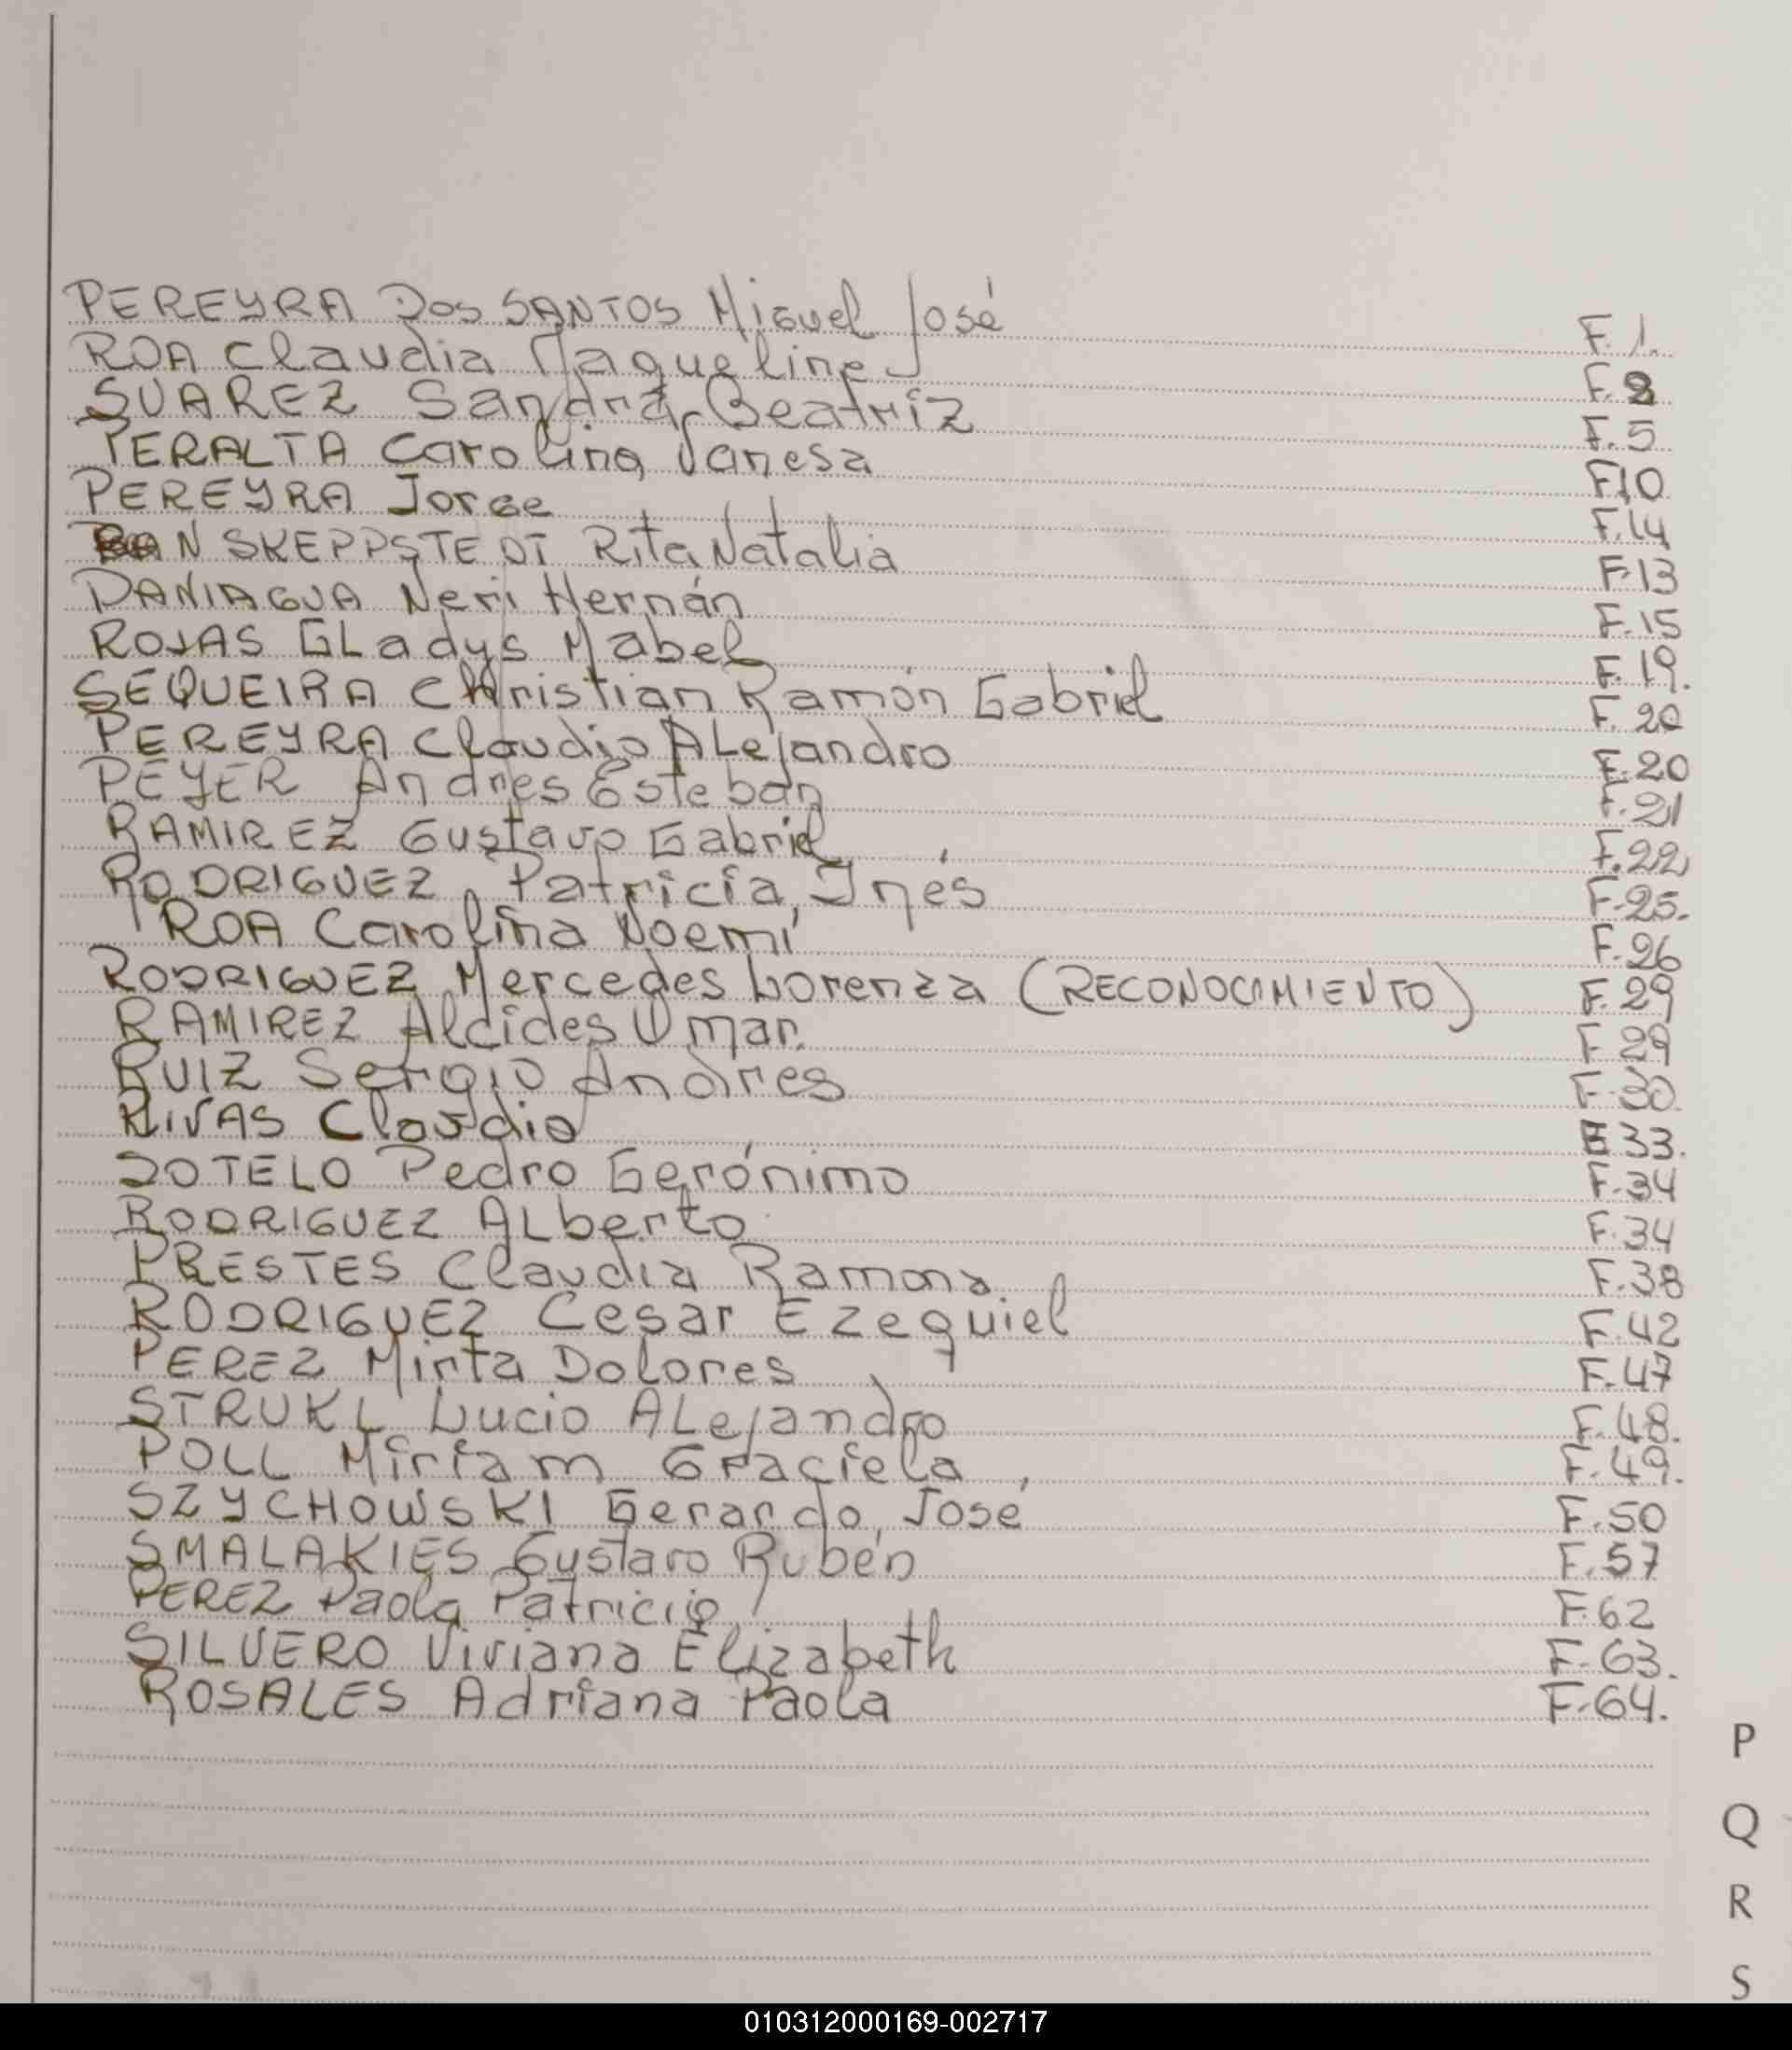 PEREYRA Dos SANTOS Miguel José F. 1.
ROA Claudia Jaqueline F. 2
SUAREZ Sandra Beatriz F. 5
PERALTA Carolina Vanesa F.10
PEREYRA Jorge F.14
SKEPPSTEDT Rita Natalia F.13
PANIAGUA Neri Hernán F.15
ROJAS GLadys Mabel F. 19.
SEQUEIRA Christian Ramón Gabriel F. 20
PEREYRA Claudio ALejandro F.20
PEYER Andres Esteban F.21
RAMIREZ Gustavo Gabriel F.22
RODRIGUEZ Patricia Inés F-25.
ROA Carolina Noemí F.26
RODRIGUEZ Mercedes Lorenza (RECONOCIMIENTO) F. 29
RAMIREZ Alcides Omar. F 29
RUIZ Sergio Andres F-30.
RIVAS Claudio F 33.
SOTELO Pedro Gerónimo F-34
RODRIGUEZ ALberto F.34
PRESTES Claudia Ramona F.38
RODRIGUEZ Cesar Ezequiel F.42
PEREZ Mirta Dolores F.47
STRUKL Lucio ALejandro F.48.
POLL Miriam Graciela F.49.
SZYCHOWSKI Gerardo José F.50
SMALAKIES Gustavo Rubén F.57
PEREZ Paola Patricia F.62
SILVERO Viviana Elizabeth F-63.
ROSALES Adriana Paola F-64.
P
Q
R
S
010312000169-002717